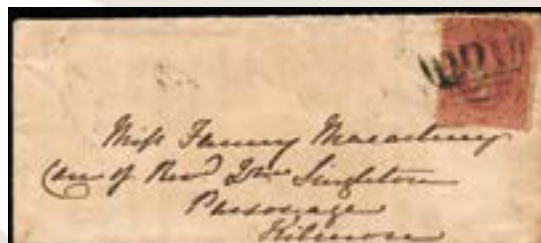 Miss Fanny Macartney
Care of Revd Wm Singleton
Parsonage
Kilmore